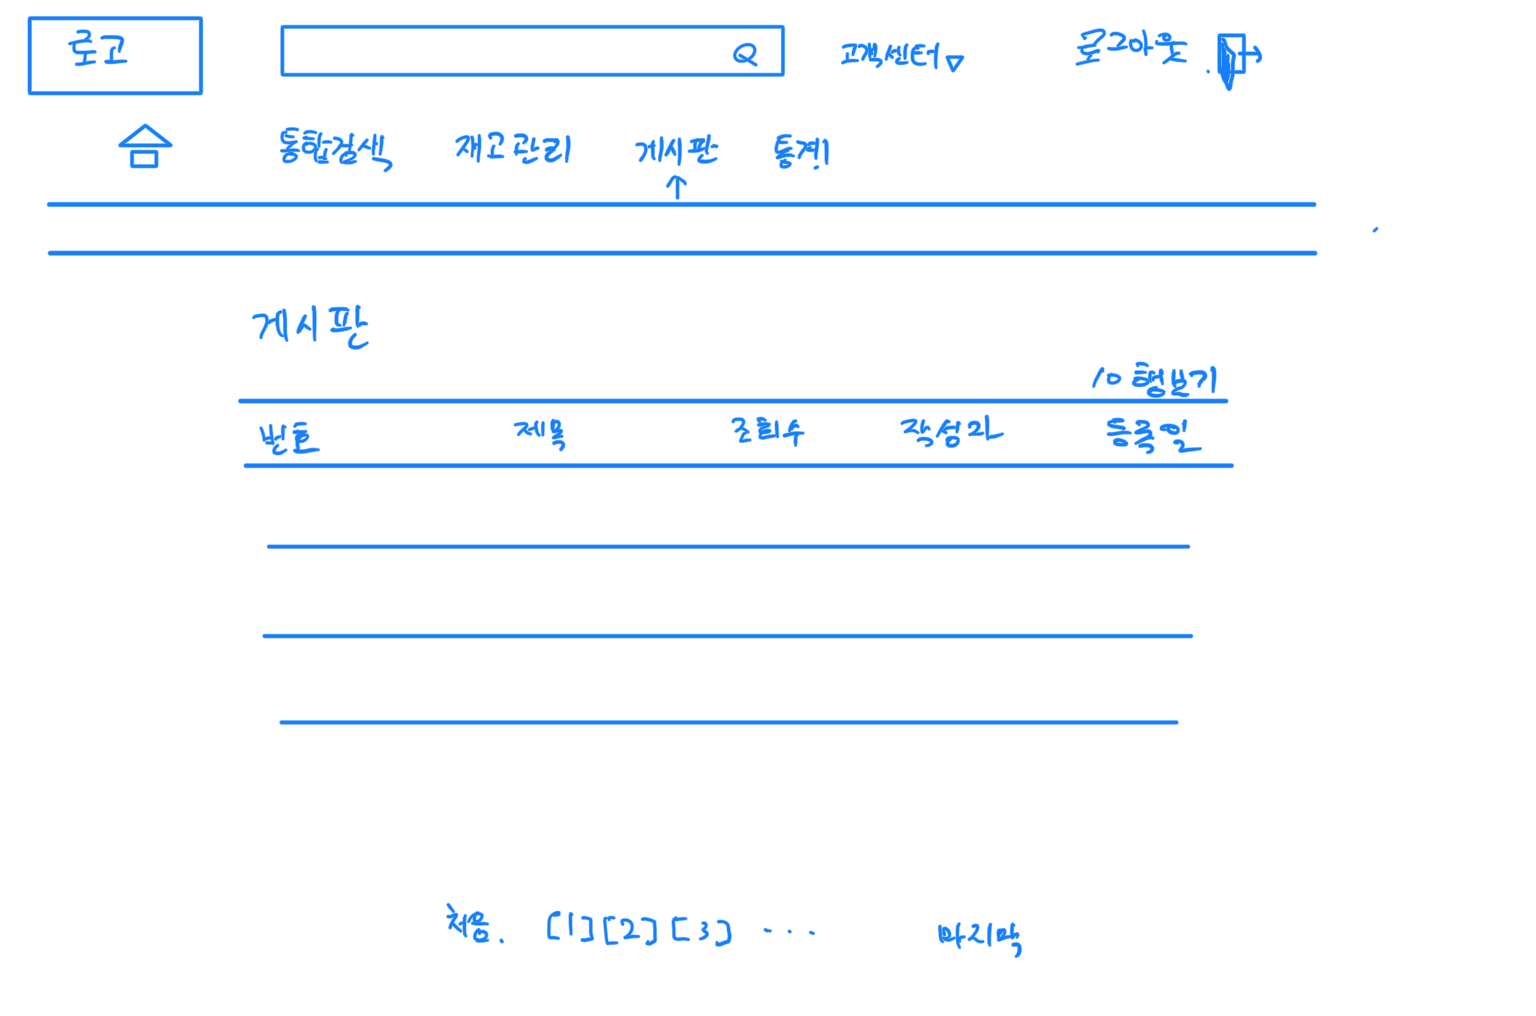 로고
고객센터
로그아웃
통합검색 재고관리 게시판 통계
게시판
10행보기
번호 제목 조회수 작성자 등록일
처음. [1][2][3] ... 마지막